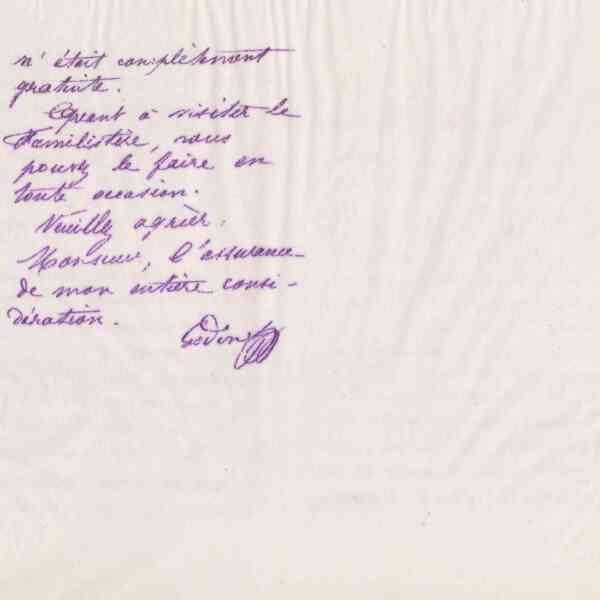 n'était complètement
gratuite.
Quant à visiter le
Familistère, vous
pouvez le faire en
toute occasion.
Veuillez agréer,
Monsieur, l'assurance
de mon entière consi-
dération.
Godin